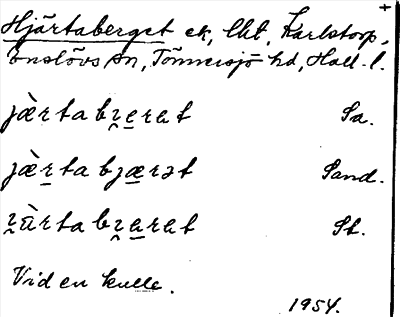 Hjärtaberget ek, lht, Karlstorp,
Enslövs sn, Tönnersjö hd, Hall. l.
jæ̀rtabɿ̯erat Sa.
jæ̀rtabjærət Sand.
ɿ̯ä̀rtabɿ̯erat St.
Vid en kulle.
1954.